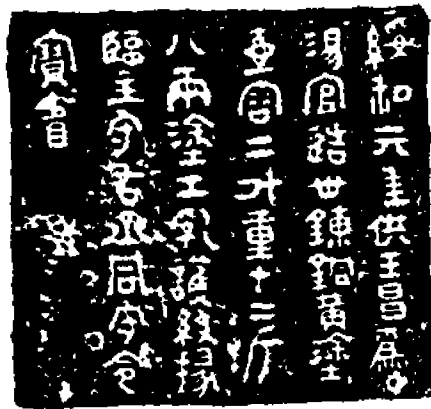 綏和元年供工昌爲
湯官造卅鍊銅黃塗
壺容二斗重十二斤
八兩塗工乳護級掾
臨主守右丞同守令
寶省